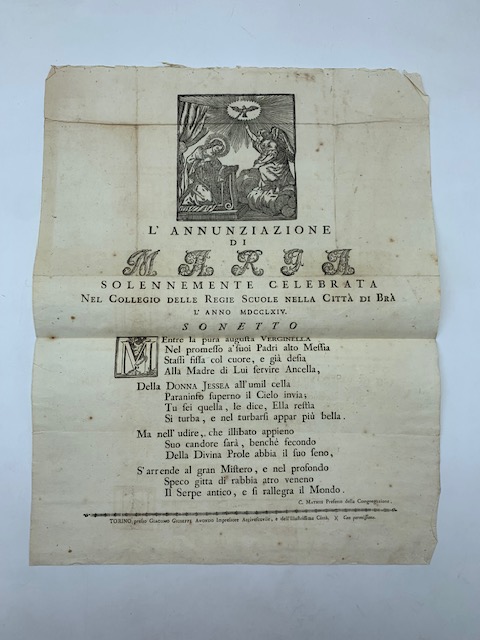 L' ANNUNZIAZIONE
DI
MARIA
SOLENNEMENTE CELEBRATA
NEL COLLEGIO DELLE REGIE SCUOLE NELLA CITTÀ DI BRÀ
L' ANNO MDCCLXIV.
SONETTO
MEntre la pura augusta VERGINELLA
Nel promesso a' suoi Padri alto Messia
Stassi fissa col cuore, e già desia
Alla Madre di Lui servire Ancella,
Della DONNA JESSEA all' umil cella
Paraninfo superno il Cielo invia;
Tu sei quella, le dice, Ella restìa
Si turba, e nel turbarsi appar più bella.
Ma nell' udire, che illibato appieno
Suo candore sarà, benchè fecondo
Della Divina Prole abbia il suo seno,
S' arrende al gran Mistero, e nel profondo
Speco gitta di rabbia atro veneno
Il Serpe antico, e si rallegra il Mondo.
Prefetto della Congregazione.
TORINO presso GIACOMO GIUSEPPE AVONDO Impressore e dell' Illustrissima Città, Con permissione.